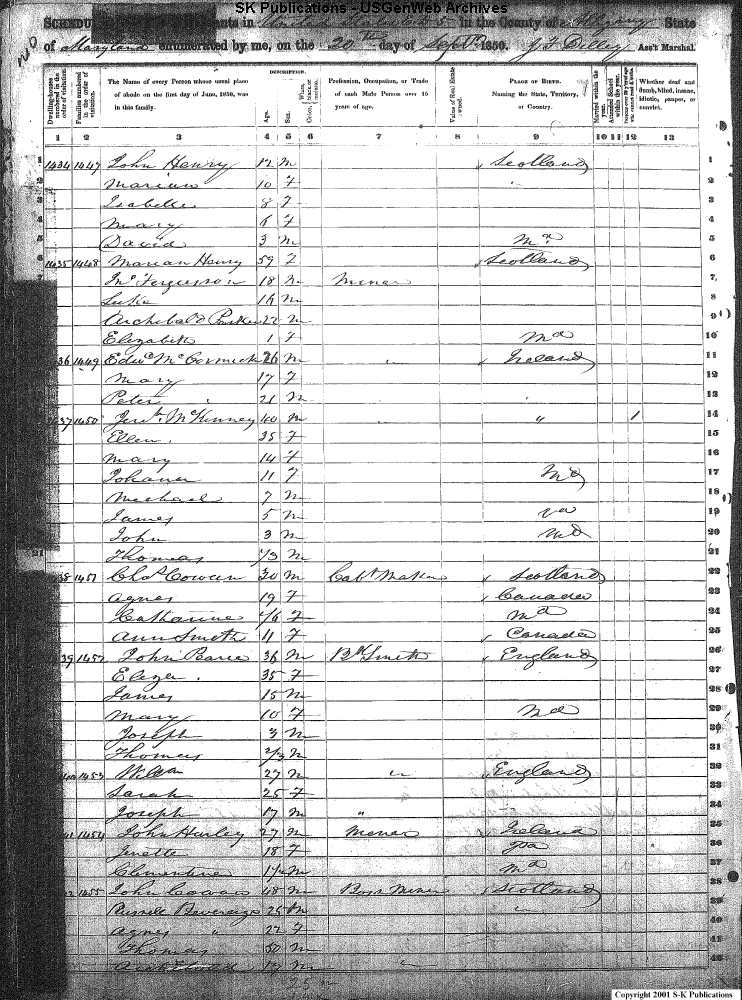 SK Publications - USGenWeb Archives
in the County of Allegany State
of Maryland enumerated by me, on the 20th day of Septr 1850. J F Dilley Ass't Marshal.
Dwelling-house numbered in the order of visitation.
Families numbered in the order of visitation.
The Name of every Person whose usual place of abode on the first day of June, 1850, was in this family.
DESCRIPTION.
Age.
Sex.
Color, White, black, or mulatto.
Profession, Occupation, or Trade of each Male Person over 15 years of age.
Value of Real Estate owned.
PLACE OF BIRTH.
Naming the State, Territory, or Country.
Married within the year.
Attended School within the year.
Whether deaf and dumb, blind, insane, idiotic, pauper, or convict.
1 2 3 4 5 6 7 8 9 10 11 12 13
1 1434 1447 John Henry 12 m Scotland 1
2 Marian 10 F 2
3 Isabella 8 F 3
4 Mary 6 F 4
5 David 3 m Md 5
6 1435 1448 Marian Henry 59 F Scotland 6
Jno Fergusson 18 m Miner 7
Luke 16 m 8
Archibald Parker 22 m 9
Elizabeth 1 F Md 10
36 1449 Edwd McCormick 26 m " Ireland 11
Mary 17 F 12
Peter 21 m 13
37 1450 McKinney 40 m " 1 14
Ellen 35 F 15
Mary 14 F 16
Johanna 11 F Md 17
Michael 7 m 18
James 5 m Va 19
John 3 m Md 20
21 Thomas 1/3 m 21
38 1451 Chas Cowan 30 m Cabt Maker Scotland 22
Agnes 19 F Canada 23
Catharine F Md 24
Ann Smith 11 F Canada 25
39 1452 John Pearce 36 m Bk Smith England 26
Eliza 35 F 27
James 15 m 28
Mary 10 F Md 29
Joseph 3 m 30
Thomas 2/3 m 31
40 1453 27 m " England 32
Sarah 25 F 33
Joseph 17 m " 34
41 1454 John Hurley 27 m Miner Ireland 35
Jenette 18 F Pa 36
Clementine m Md 37
1455 John Cowan 48 m Miner Scotland 38
Russell Beverage 25 m " 39
Agnes " 22 F
Thomas 50 m 41
m " 42
Copyright 2001 S-K Publications